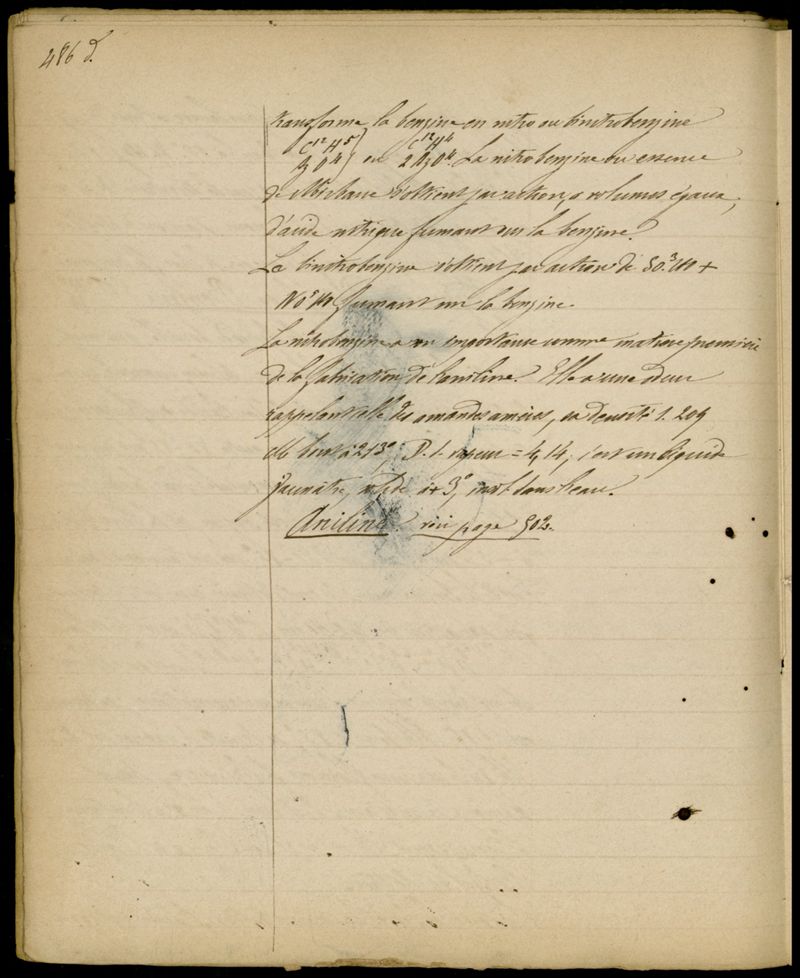 486 d.
transforme la benzine en nitro ou binitrobenzine
C12 H5 C12 H4
Az O4 } ou 2 Az O4. La nitrobenzine ou essence
de Mirbane s'obtient par action, a volumes égaux,
d'acide nitrique fumant sur la benzine.
La binitrobenzine s'obtient par action de SO3 HO +
NO5 HO fumant sur la benzine.
La nitrobenzine a un importance comme matière première
de la fabrication de l'aniline. Elle a une odeur
rappelant celle des amandes amères, sa densité 1.209
elle bout à 213° D. d. vapeur = 4,14, c'est un liquide
jaunâtre, solide à + 3°, insol. dans l'eau.
Aniline voir page 502.